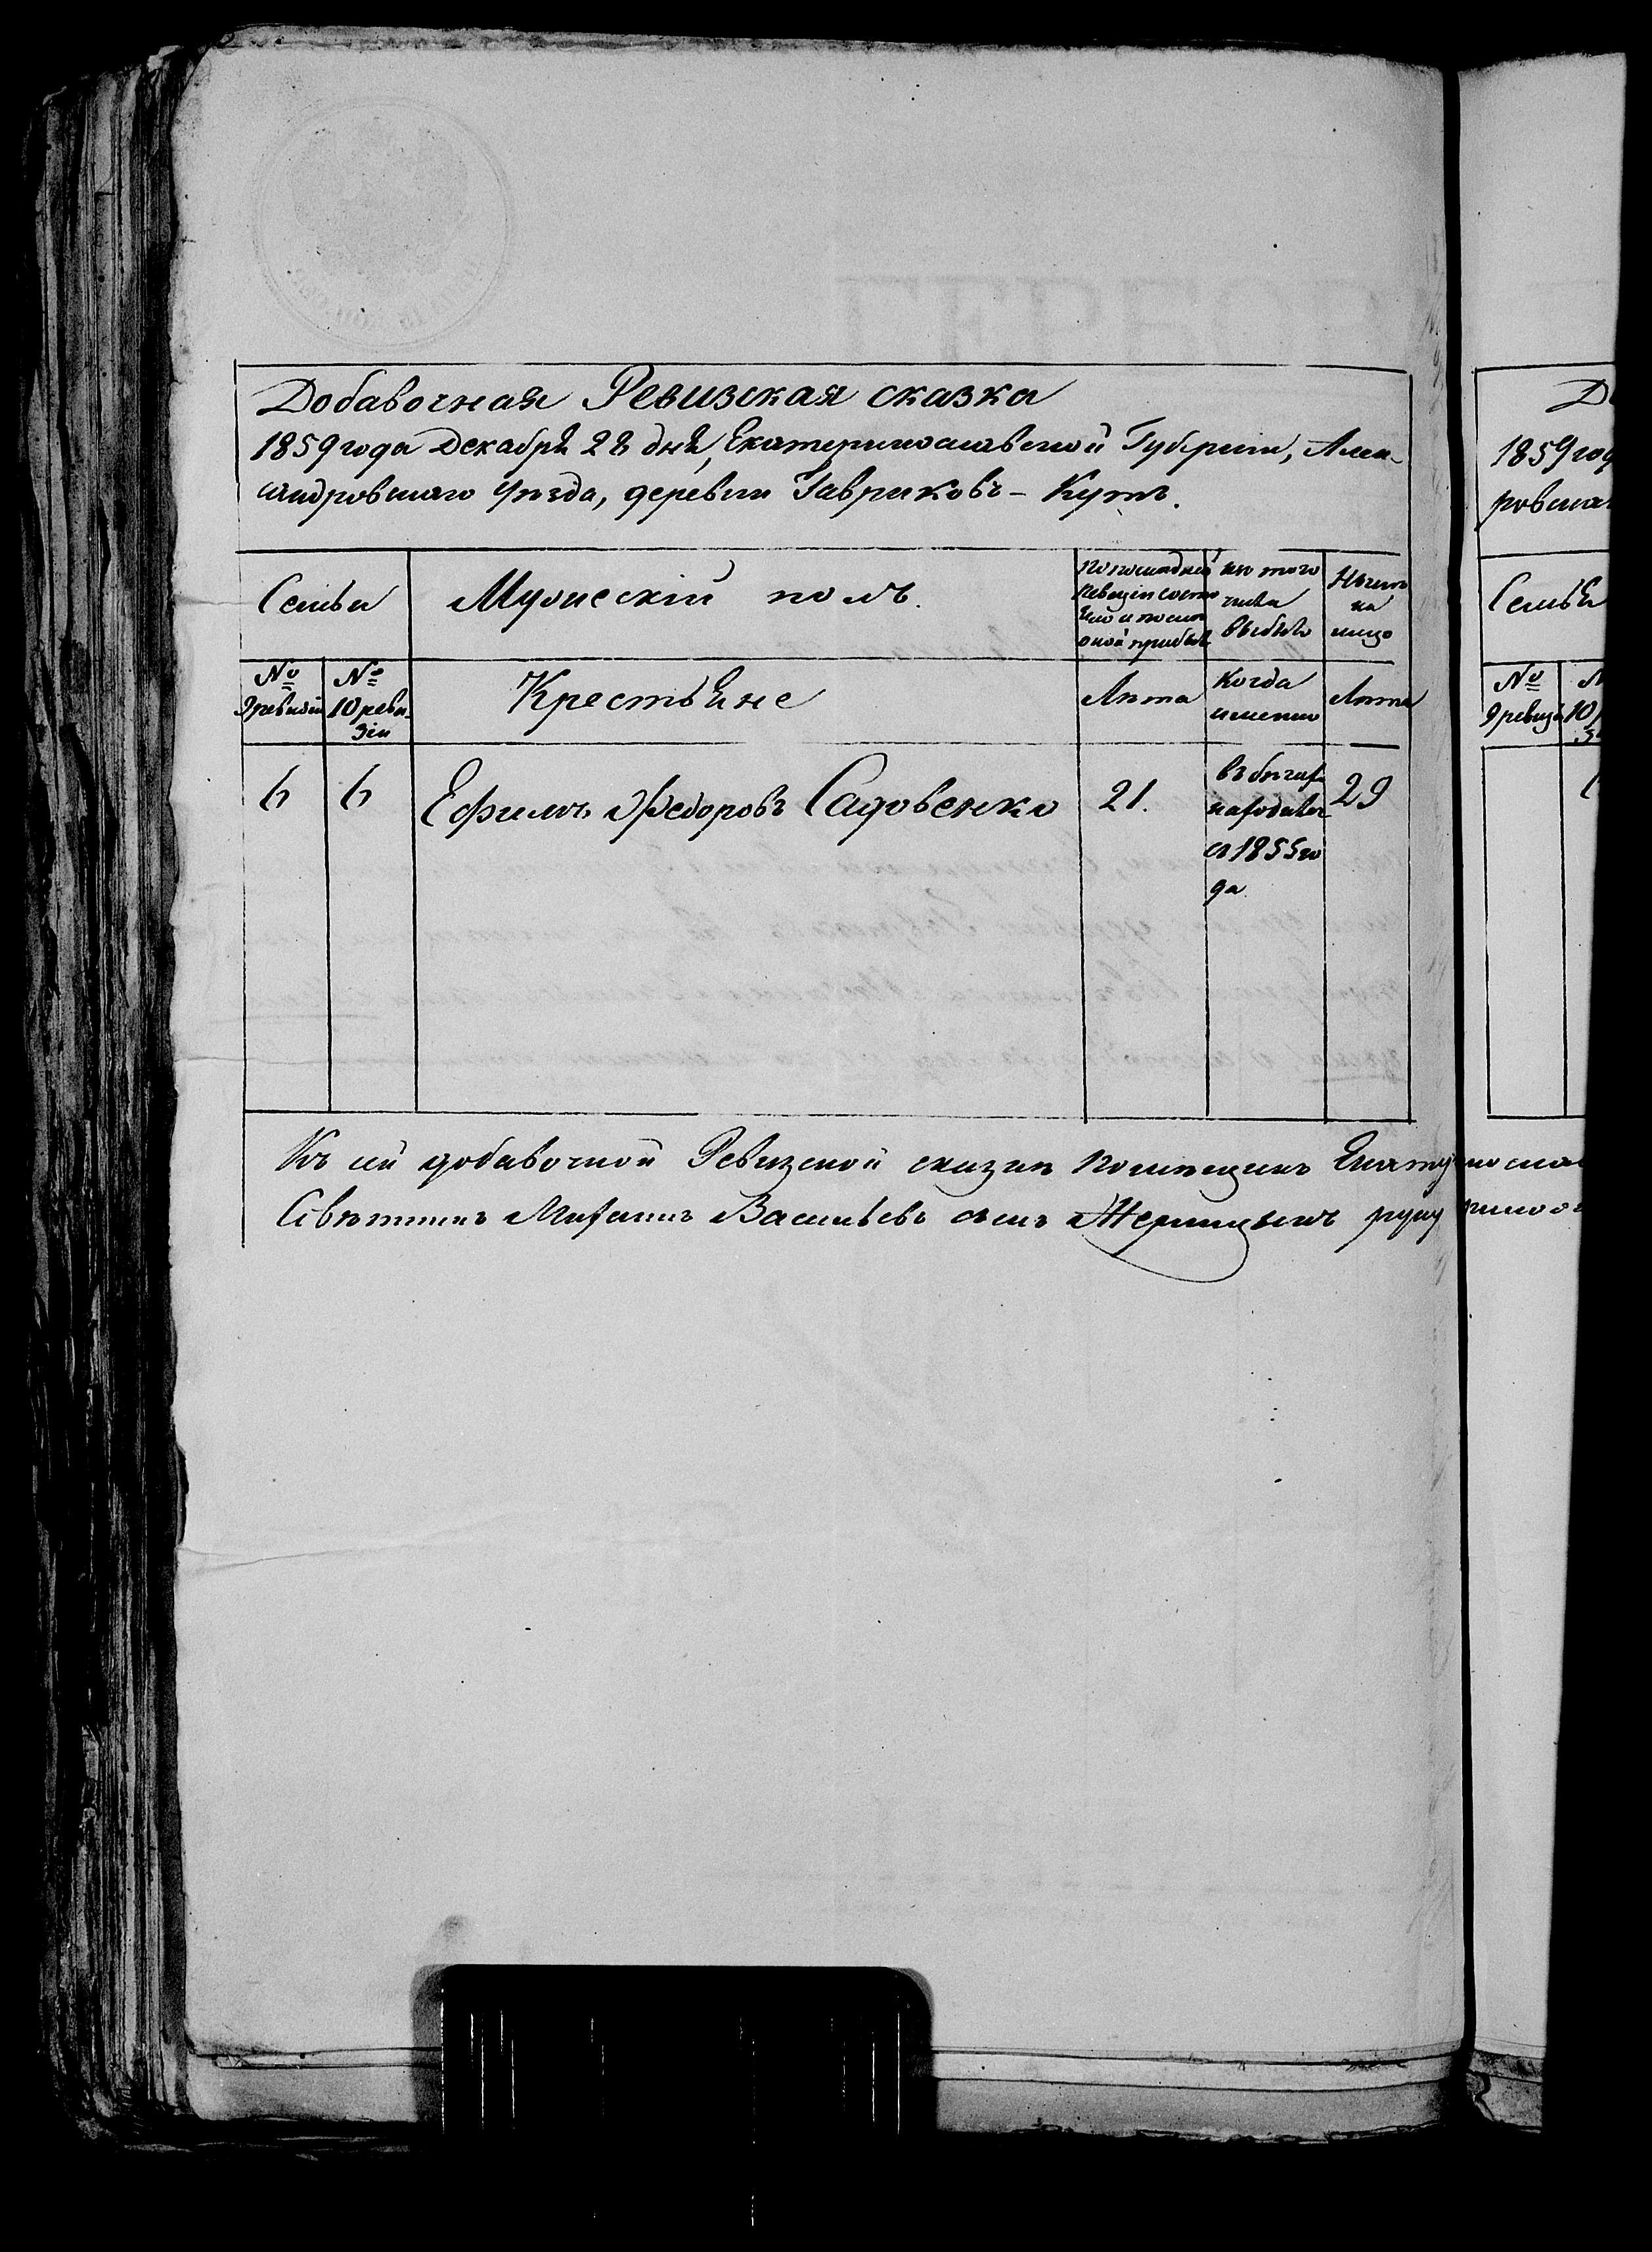 Добавочная Ревизская сказка
1859 года Декабря 28 дня, Екатеринославской Губерніи, Алек-
сандровскаго Уѣзда, деревни Гавриковъ-Кутъ.
Семьи
Мужескій полъ.
По послѣдней ревизіи состояло и послѣ оной прибыло
изъ того числа выбыло
Нынѣ на лицо
№ 9 ревизіи
№ 10 ревизіи
Крестьяне
Лѣта
Когда именно
Лѣта
6
6
Ефимъ Федоровъ Садовенко
21.
въ бѣгах
находился
съ 1855 го
да
29
Къ сей добавочной Ревизской сказкѣ Помѣщикъ
Совѣтникъ Михаилъ Васильевъ сынъ руку
1859 год
Семьи
№
9 ревизі